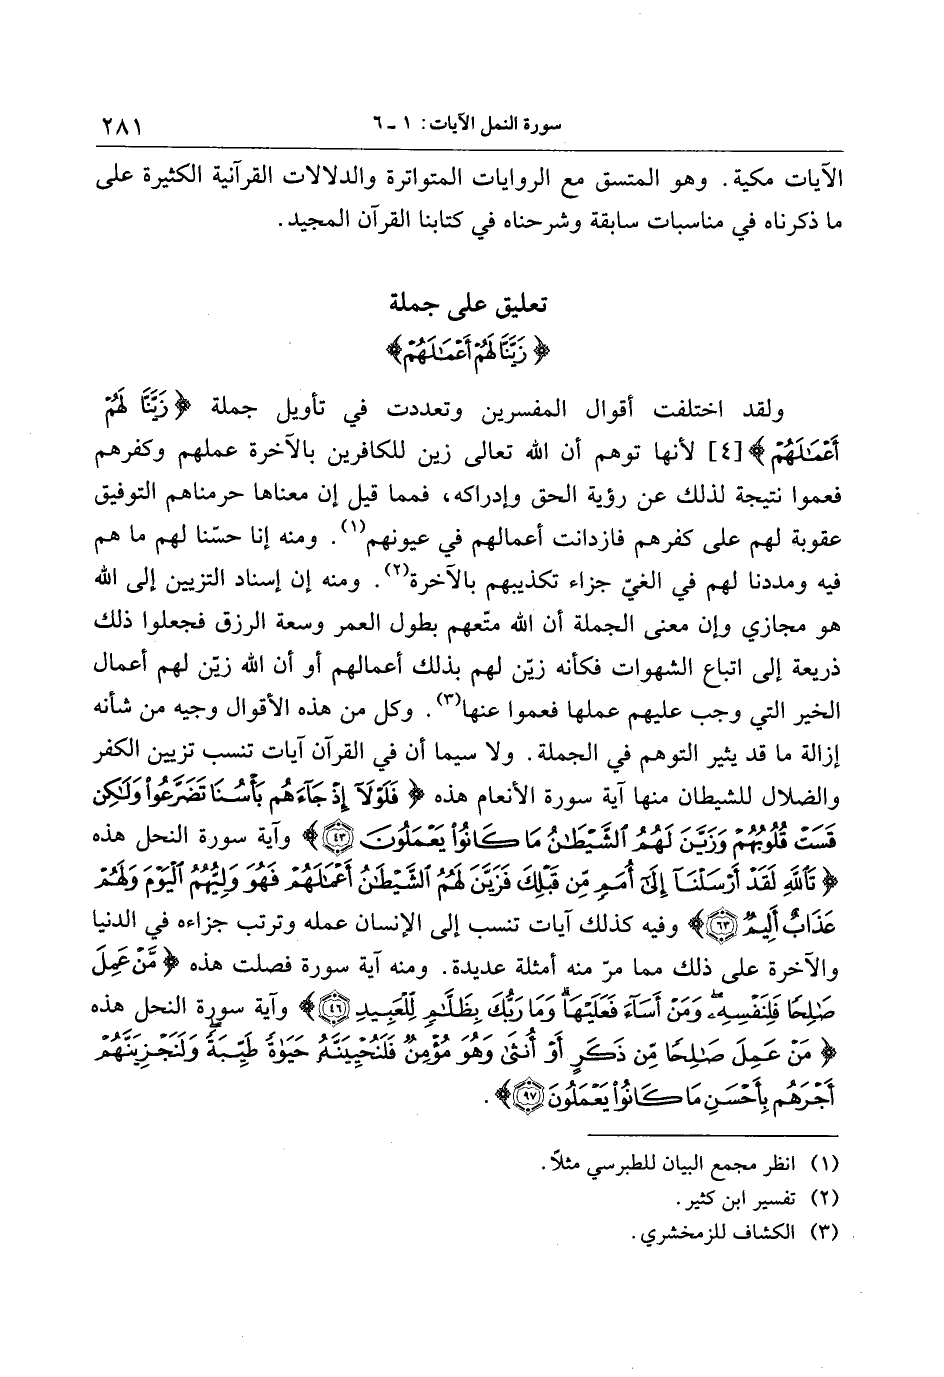 سورة النمل الآيات: ١ ـ ٦
٢٨١
الآيات مكية. وهو المتسق مع الروايات المتواترة والدلالات القرآنية الكثيرة على
ما ذكرناه في مناسبات سابقة وشرحناه في كتابنا القرآن المجيد.
تعليق على جملة
﴿ زَيَّنَّا لَهُمْ أَعْمَـٰلَهُمْ﴾
ولقد اختلفت أقوال المفسرين وتعددت في تأويل جملة ﴿ زَيَّنَّا لَهُمْ
أَعْمَـٰلَهُمْ﴾ [٤] لأنها توهم أن الله تعالى زين للكافرين بالآخرة عملهم وكفرهم
فعموا نتيجة لذلك عن رؤية الحق وإدراكه، فمما قيل إن معناها حرمناهم التوفيق
عقوبة لهم على كفرهم فازدانت أعمالهم في عيونهم(١). ومنه إنا حسّنا لهم ما هم
فيه ومددنا لهم في الغيّ جزاء تكذيبهم بالآخرة(٢). ومنه إن إسناد التزيين إلى الله
هو مجازي وإن معنى الجملة أن الله متّعهم بطول العمر وسعة الرزق فجعلوا ذلك
ذريعة إلى اتباع الشهوات فكأنه زيّن لهم بذلك أعمالهم أو أن الله زيّن لهم أعمال
الخير التي وجب عليهم عملها فعموا عنها(٣). وكل من هذه الأقوال وجيه من شأنه
إزالة ما قد يثير التوهم في الجملة. ولا سيما أن في القرآن آيات تنسب تزيين الكفر
والضلال للشيطان منها آية سورة الأنعام هذه ﴿ فَلَوْلَآ إِذْ جَآءَهُم بَأْسُنَا تَضَرَّعُوا۟ وَلَـٰكِن
قَسَتْ قُلُوبُهُمْ وَزَيَّنَ لَهُمُ ٱلشَّيْطَـٰنُ مَا كَانُوا۟ يَعْمَلُونَ ٤٣﴾ وآية سورة النحل هذه
﴿ تَٱللَّهِ لَقَدْ أَرْسَلْنَآ إِلَىٰٓ أُمَمٍ مِّن قَبْلِكَ فَزَيَّنَ لَهُمُ ٱلشَّيْطَـٰنُ أَعْمَـٰلَهُمْ فَهُوَ وَلِيُّهُمُ ٱلْيَوْمَ وَلَهُمْ
عَذَابٌ أَلِيمٌ ٦٣﴾ وفيه كذلك آيات تنسب إلى الإنسان عمله وترتب جزاءه في الدنيا
والآخرة على ذلك مما مرّ منه أمثلة عديدة. ومنه آية سورة فصلت هذه ﴿ مَّنْ عَمِلَ
صَـٰلِحًا فَلِنَفْسِهِۦ ۖ وَمَنْ أَسَآءَ فَعَلَيْهَا ۗ وَمَا رَبُّكَ بِظَلَّـٰمٍ لِّلْعَبِيدِ ٤٦﴾ وآية سورة النحل هذه
﴿ مَنْ عَمِلَ صَـٰلِحًا مِّن ذَكَرٍ أَوْ أُنثَىٰ وَهُوَ مُؤْمِنٌ فَلَنُحْيِيَنَّهُۥ حَيَوٰةً طَيِّبَةً ۖ وَلَنَجْزِيَنَّهُمْ
أَجْرَهُم بِأَحْسَنِ مَا كَانُوا۟ يَعْمَلُونَ ٩٧﴾.
(١) انظر مجمع البيان للطبرسي مثلاً.
(٢) تفسير ابن كثير.
(٣) الكشاف للزمخشري.